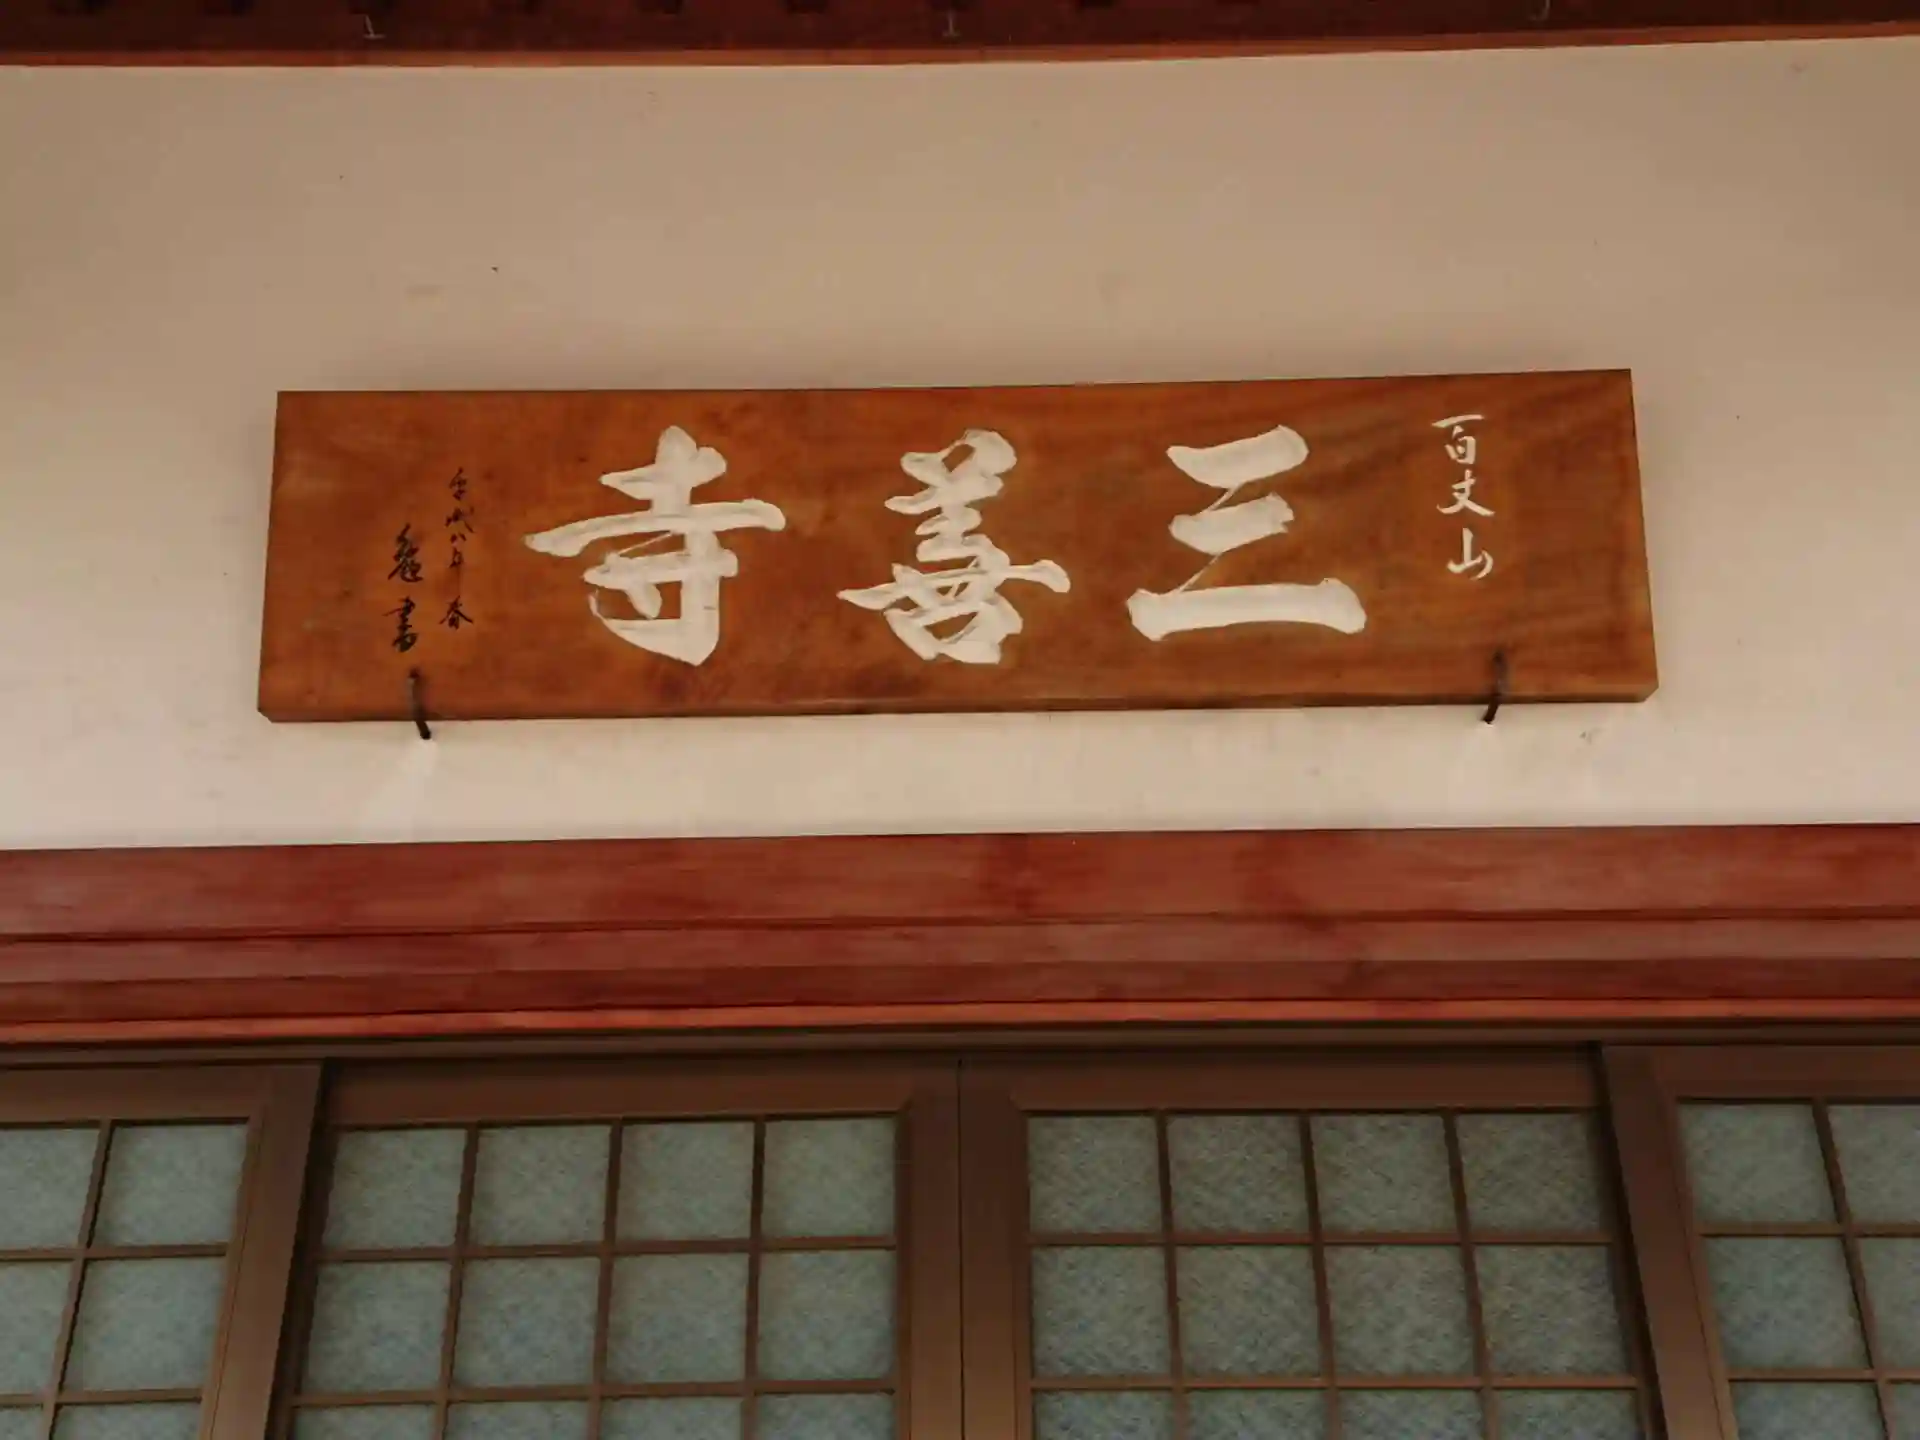 百丈山
三善寺
平成八年春
書